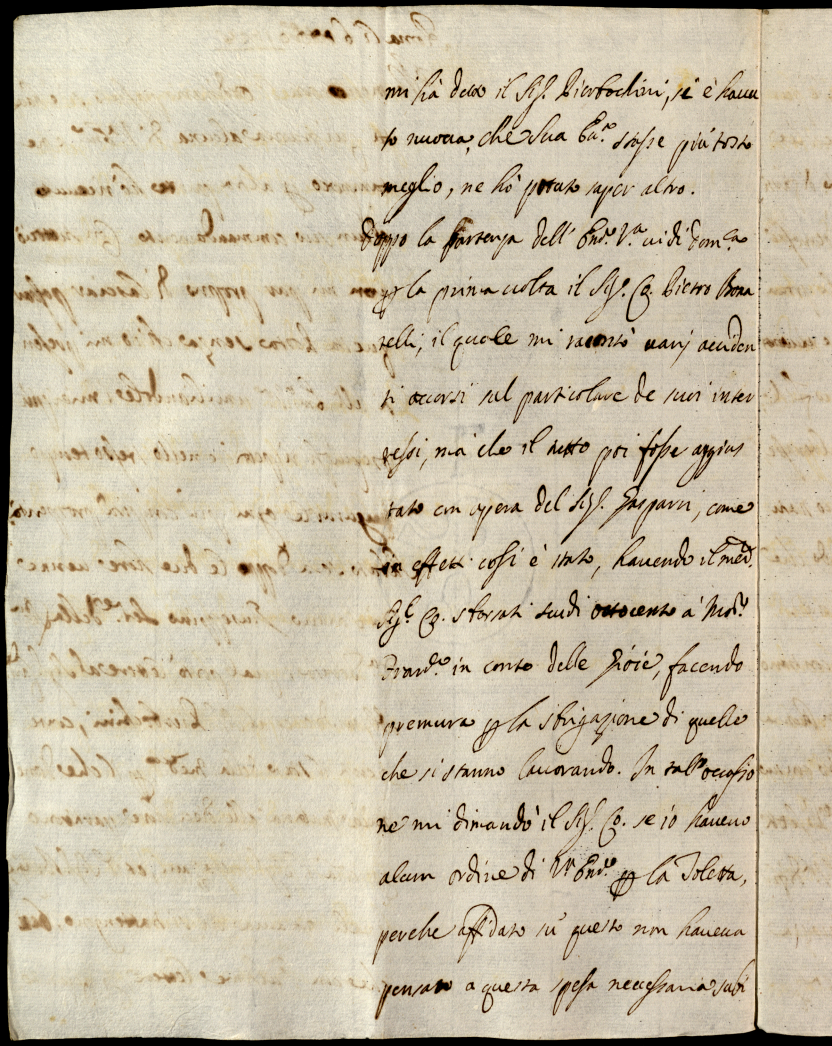 mi hà detto il Sig.r Pierbochini, si è havu
to nuova, che Sua Em.a stasse più tosto
meglio, ne hò potuto saper altro.
Doppo la partenza dell' Em.a V.a vidi dom.ca
p la prima volta il Sig.r Co. Pietro Bona
relli, il quale mi raccontò varij acciden
ti occorsi sul particolare de suoi inter
ressi, mà che il tutto poi fosse aggius
tato con opera del Sig.r Gasparri, come
in effetti cossi è stato, havendo il med.o
Sig.r Co. sborsati scudi ottocento à Mor.
in conto delle Gioie, facendo
premura p la sbrigazione di quelle
che si stanno lavorando. In tal'occasio
ne mi dimandò il Sig.r Co. se io havevo
alcun ordine di V.ra Em.a p la Toletta,
perche affidato sù questo non haveva
pensato a questa spesa necessaria subi